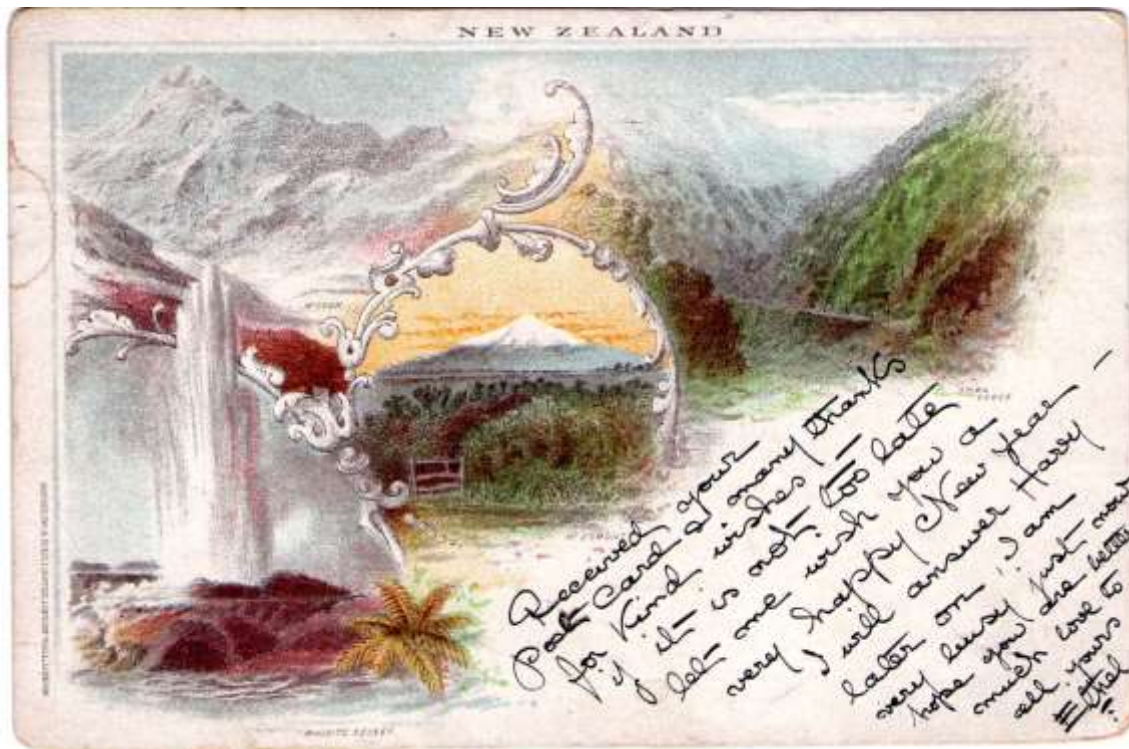 NEW ZEALAND
Mt COOK
Received your
Post Card & many thanks
for kind wishes –
if it is not too late
let me wish you a
very happy New Year –
I will answer Harry
later on. I am
very busy just now
hope you are better
much love to
all yours
Ethel